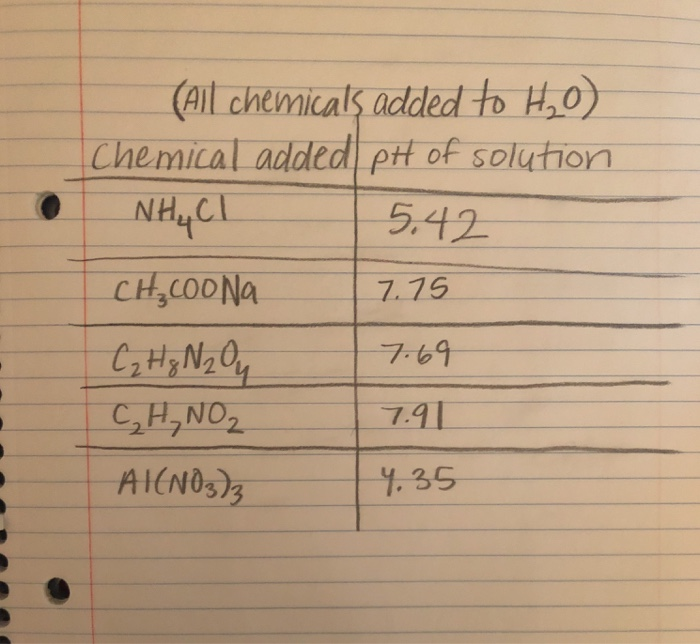 (All chemicals added to H₂O)
Chemical added pH of solution
NH₄Cl 5.42
CH₃COONa 7.75
C₂H₈N₂O₄ 7.69
C₂H₇NO₂ 7.91
Al(NO₃)₃ 4.35